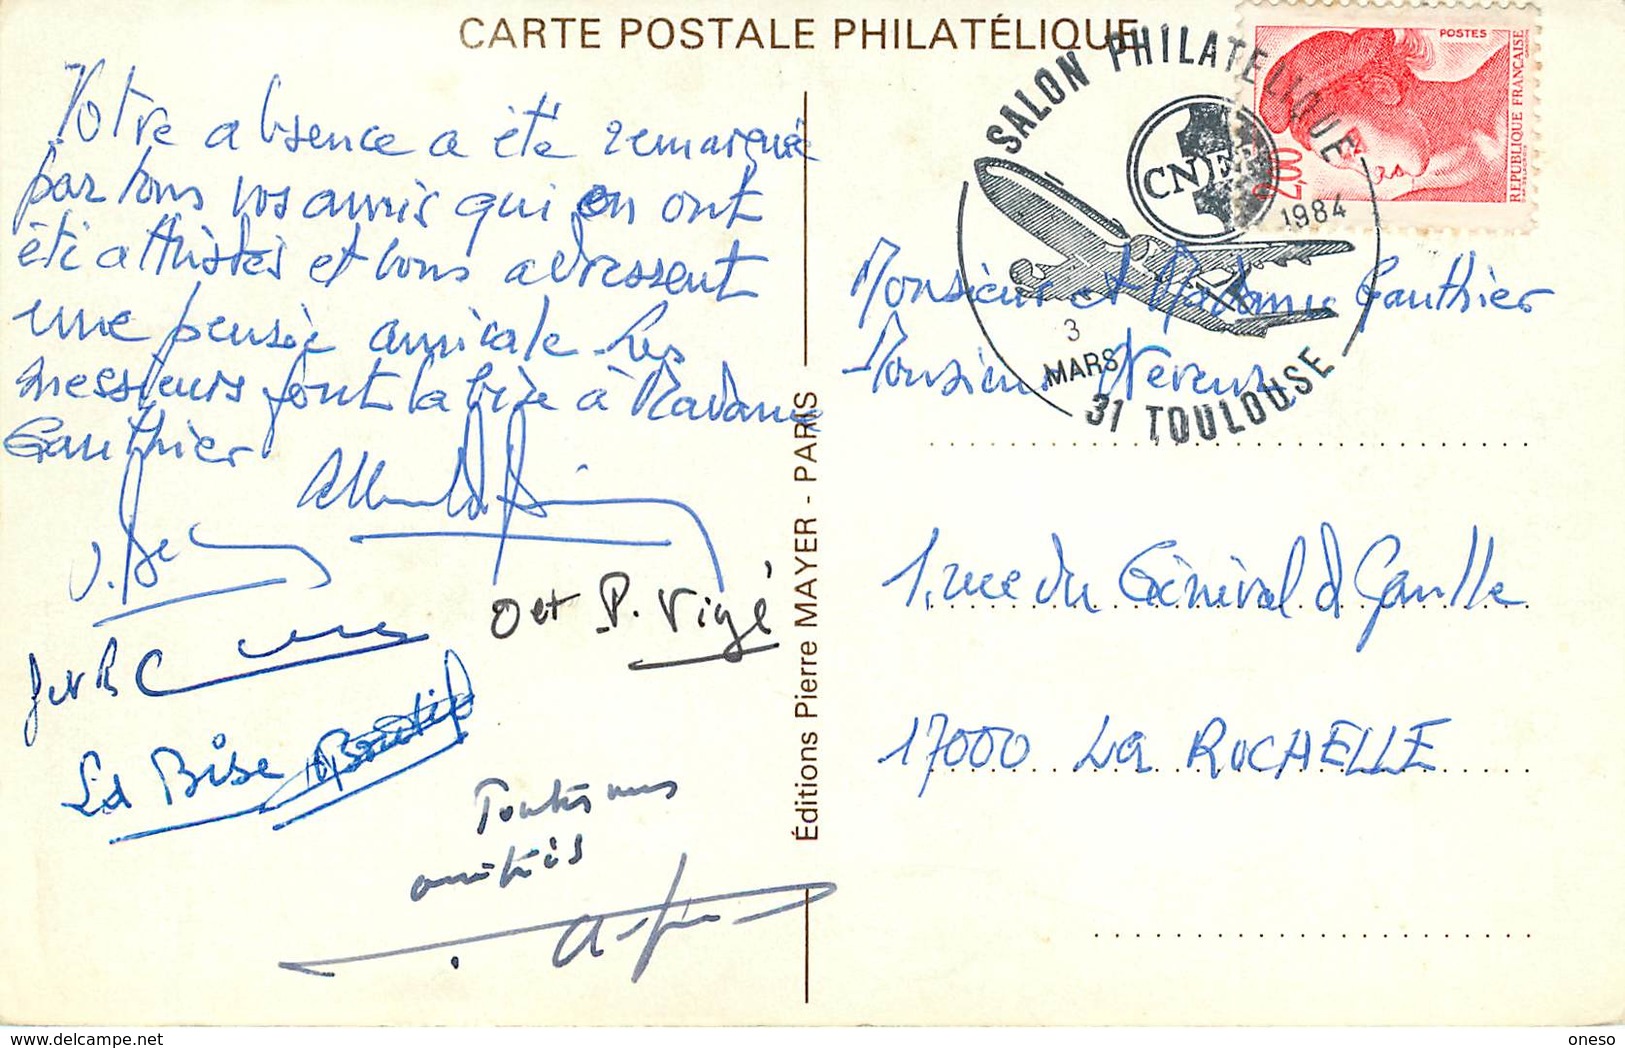 CARTE POSTALE PHILATÉLIQUE
Votre absence a été remarquée
par tous vos amis qui en ont
été attristés et vous adressent
une pensée amicale. Les
messieurs font la bise à Madame
Gauthier
O et P. Vigé
La Bise
Toutes mes
amitiés
Éditions Pierre MAYER - PARIS
SALON PHILATELIQUE
CNEP
3
MARS
1984
31 TOULOUSE
POSTES
2,00
REPUBLIQUE FRANÇAISE
Monsieur et Madame Gauthier
Monsieur Neveux
1, rue du Général d Gaulle
17000 LA ROCHELLE
www.delcampe.net
oneso